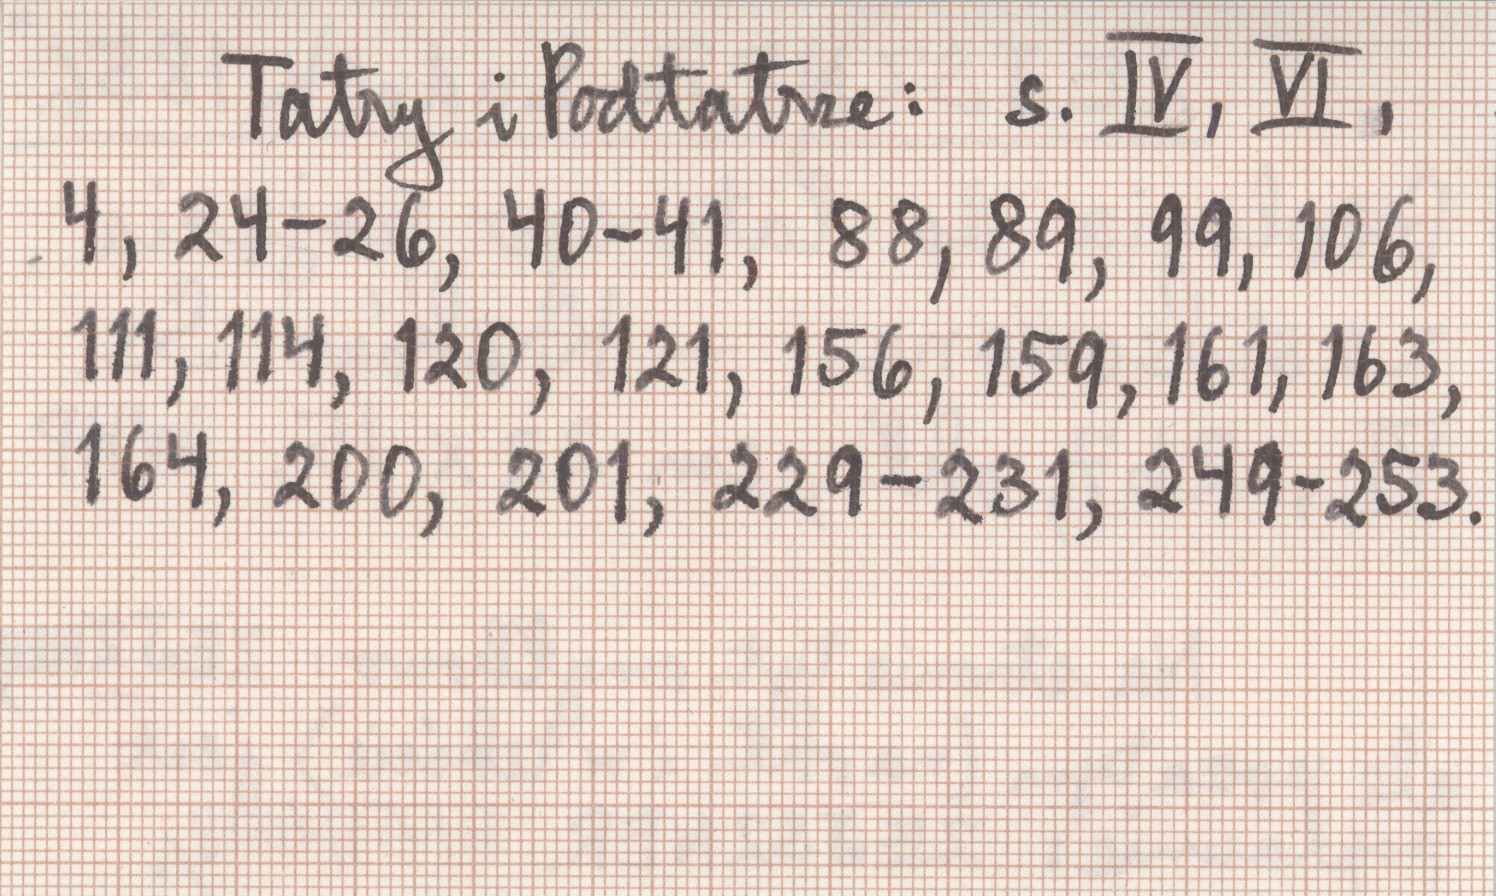 Tatry i Podtatrze: s. IV, VI,
4, 24-26, 40-41, 88, 89, 99, 106,
111, 114, 120, 121, 156, 159, 161, 163,
164, 200, 201, 229-231, 249-253.